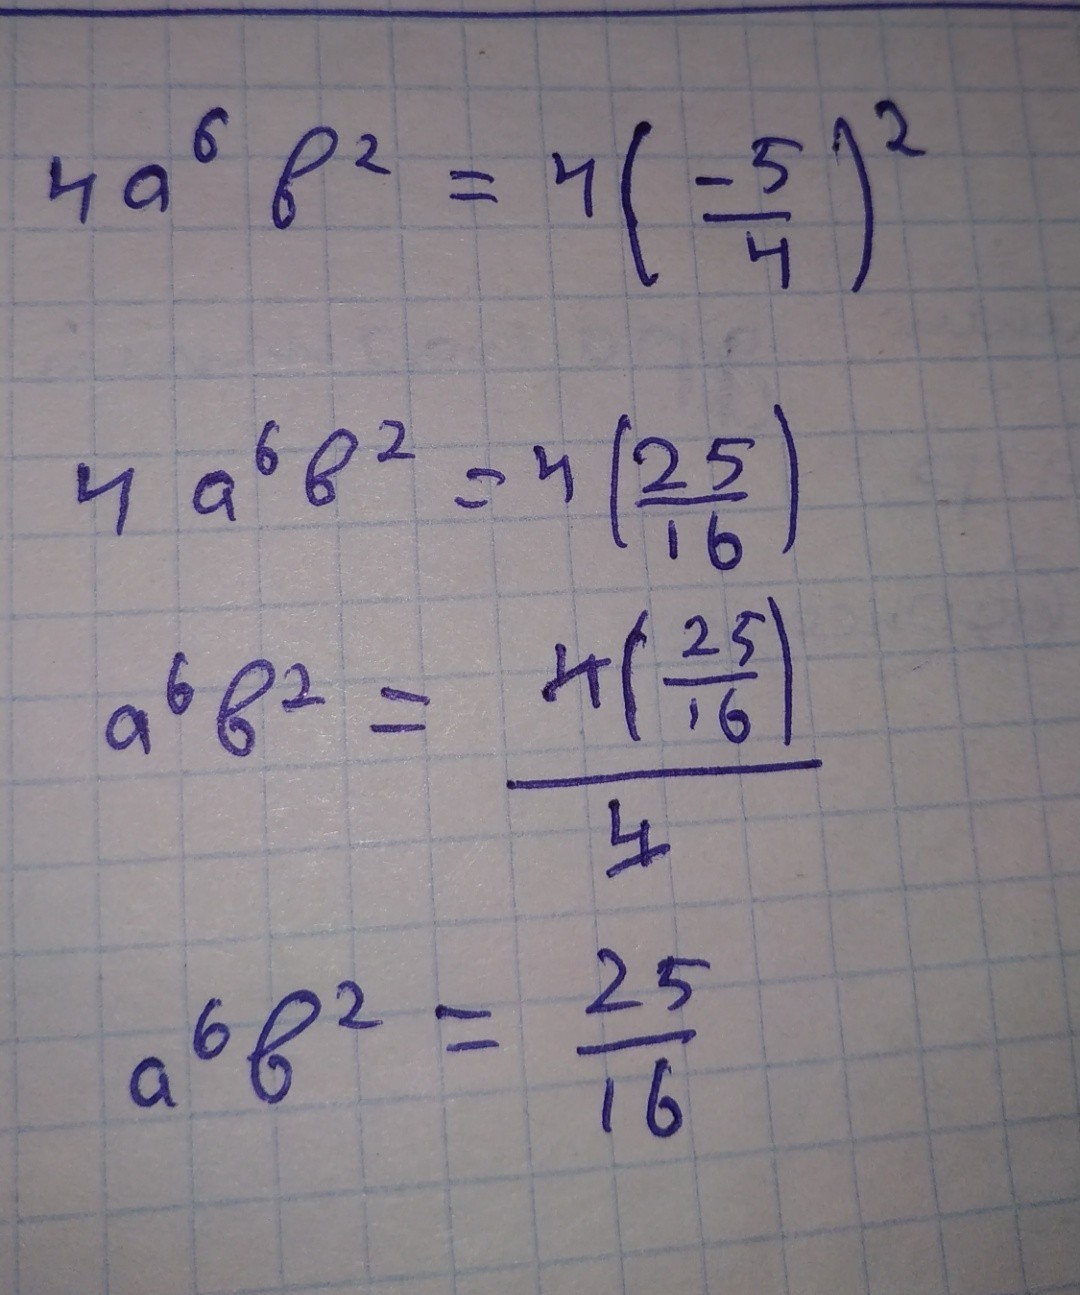 4a⁶в² = 4(-5/4)²
4a⁶в² = 4(25/16)
a⁶в² = 4(25/16)/4
a⁶в² = 25/16